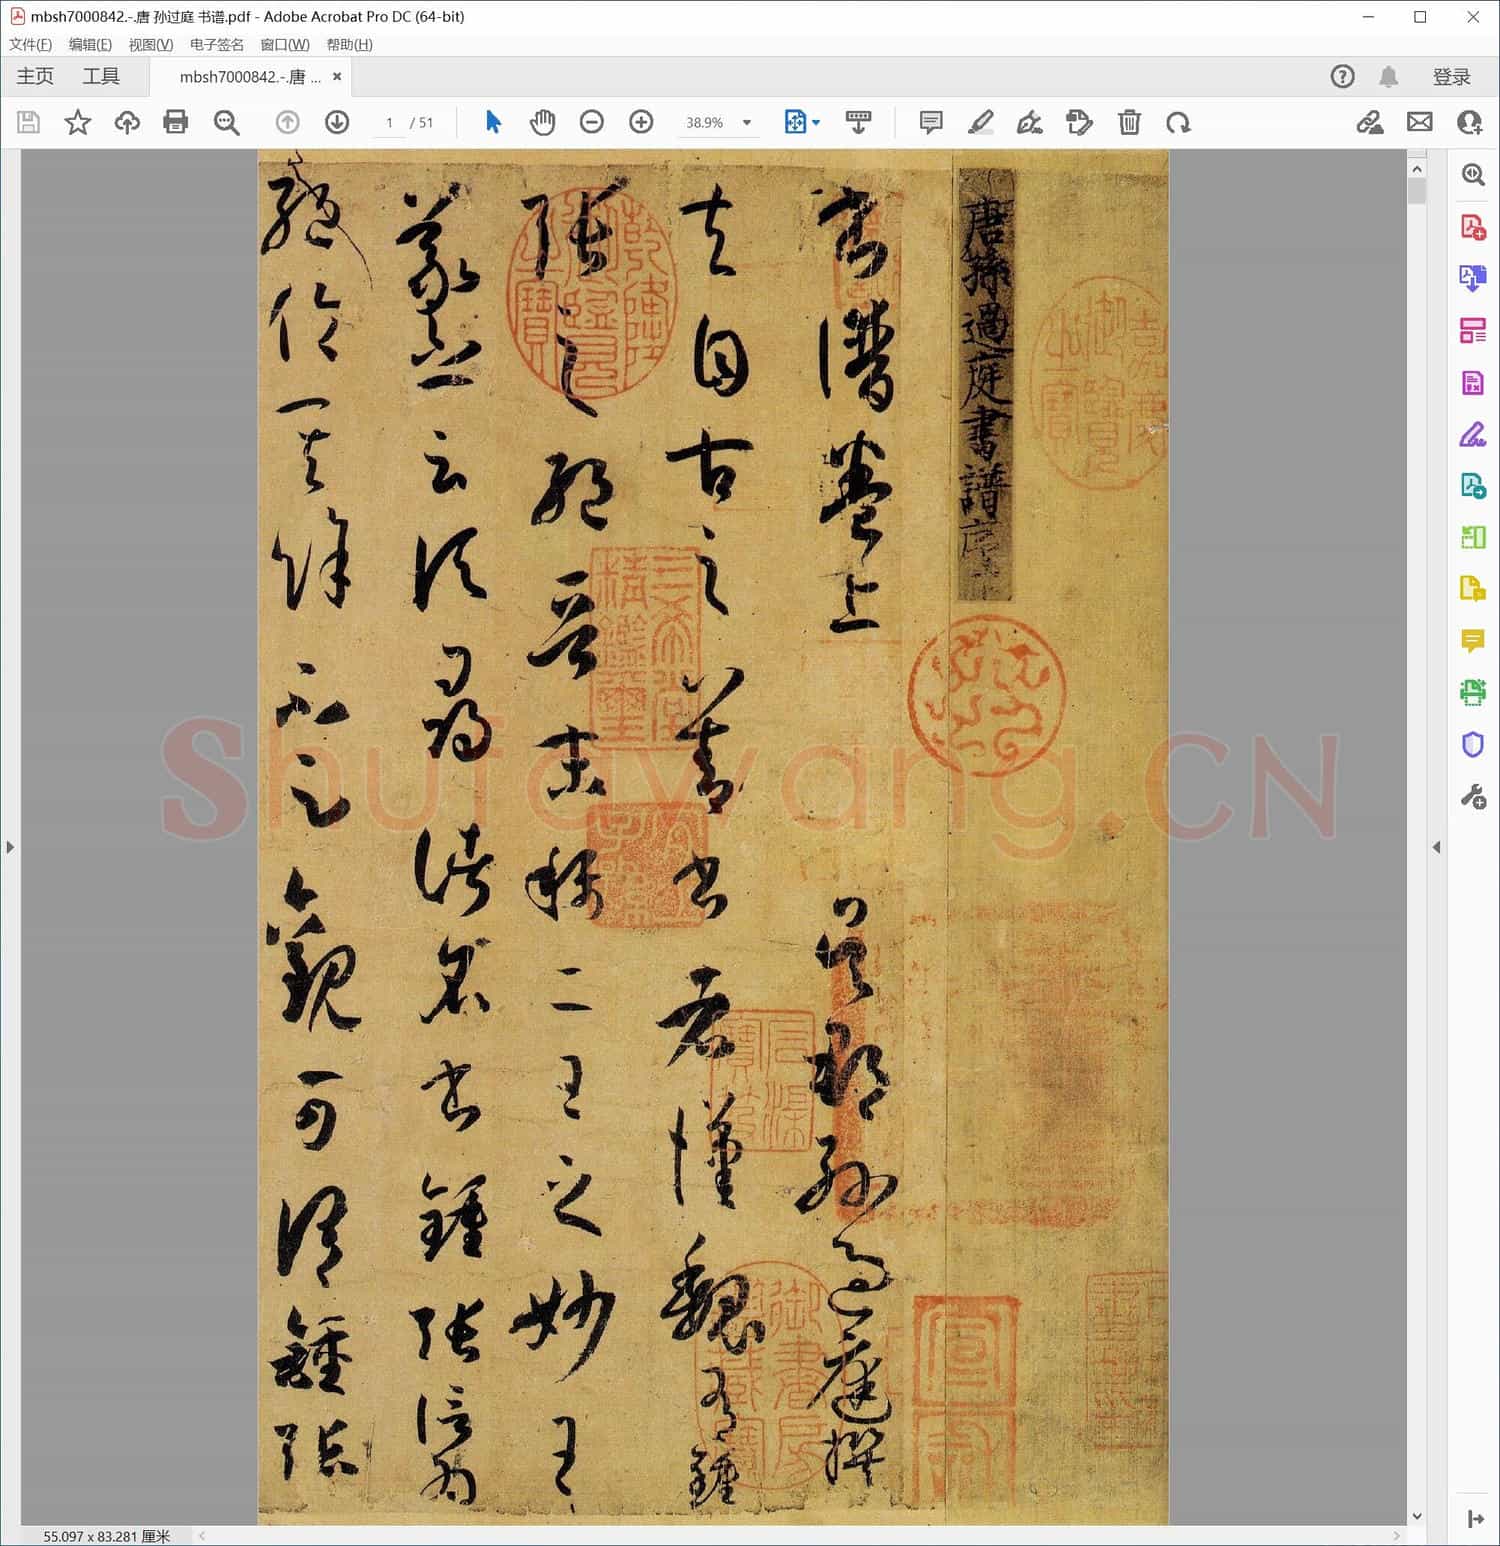 mbsh7000842.-.唐 孙过庭 书谱.pdf - Adobe Acrobat Pro DC (64-bit)
文件(F) 编辑(E) 视图(V) 电子签名 窗口(W) 帮助(H)
主页 工具 mbsh7000842.-.唐 ... × 登录
1 / 51 38.9%
唐孫過庭書譜序
書譜卷上 吳郡孫過庭撰
夫自古之善書者漢魏有鍾
張之絕晉末稱二王之妙王
羲之云頃尋諸名書鍾張信為
絕倫其餘不足觀可謂鍾張
乾隆御覽之寶
嘉慶御覽之寶
三希堂精鑑璽
宜子孫
Shufawang.CN
55.097 x 83.281 厘米